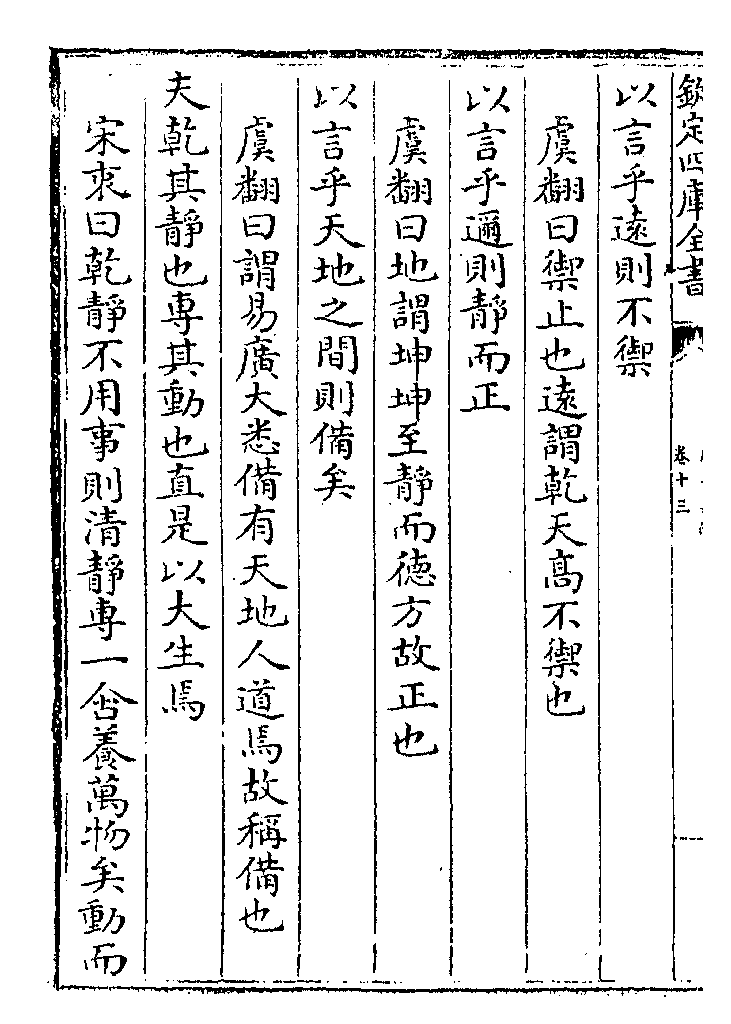 欽定四庫全書
卷十三
以言乎遠則不禦
虞翻曰禦止也遠謂乾天高不禦也
以言乎邇則靜而正
虞翻曰地謂坤坤至靜而德方故正也
以言乎天地之間則備矣
虞翻曰謂易廣大悉備有天地人道焉故稱備也
夫乾其靜也專其動也直是以大生焉
宋衷曰乾靜不用事則清靜專一含養萬物矣動而